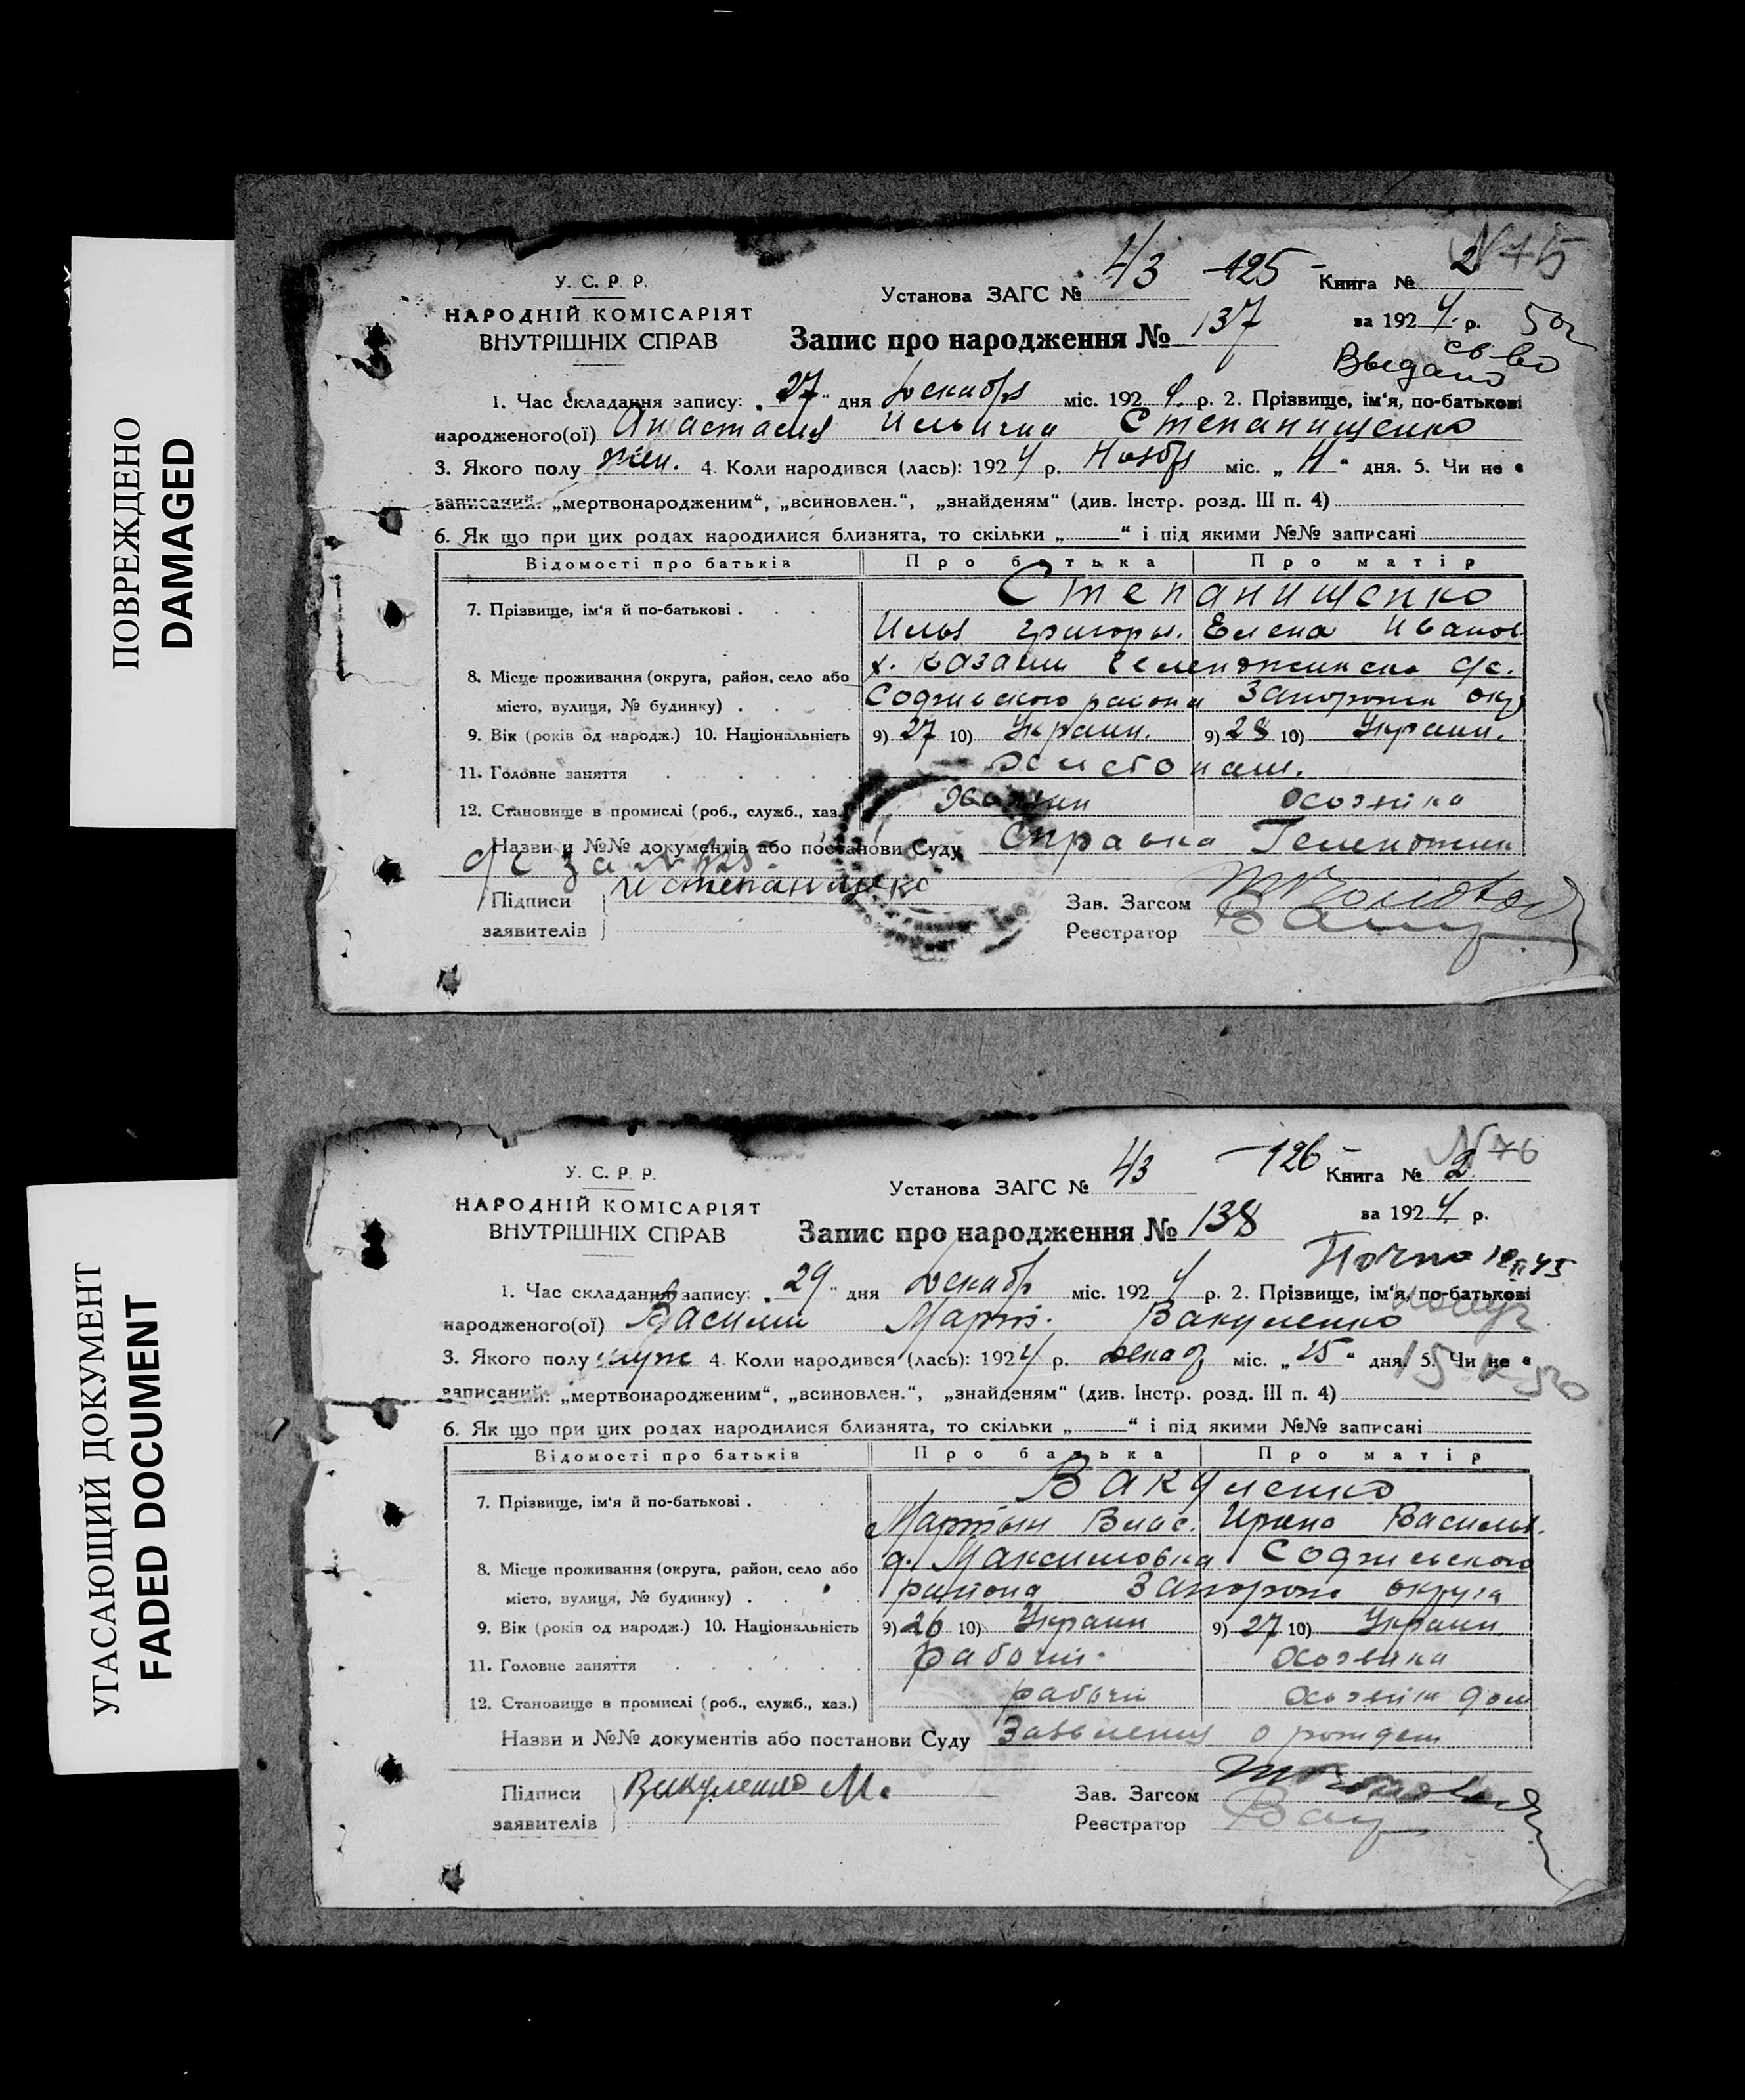 ПОВРЕЖДЕНО
DAMAGED
У. С. Р. Р.
НАРОДНІЙ КОМІСАРІЯТ
ВНУТРІШНІХ СПРАВ
Установа ЗАГС № 43 125 - Книга № 2 N 75
Запис про народження № 137 за 1924 р.
Выдано св-во
1. Час складання запису: „27“ дня Декабря міс. 1924 р. 2. Прізвище, ім'я, по-батькові
народженого(ої) Анастасия Ильична Степанищенко
3. Якого полу жен. 4. Коли народився (лась): 1924 р. Ноября міс. „11“ дня. 5. Чи не є
записаний: „мертвонародженим“, „всиновлен.“, „знайденям“ (див. Інстр. розд. III п. 4)
6. Як що при цих родах народилися близнята, то скільки „——“ і під якими №№ записані
Відомості про батьків Про батька Про матір
7. Прізвище, ім'я й по-батькові . Степанищенко
Илья Григорьев. Елена Иванов.
8. Місце проживання (округа, район, село або х. с/с.
місто, вулиця, № будинку) . района Запорожск окр
9. Вік (років од народж.) 10. Національність 9) 27 10) Украин. 9) 28 10) Украин.
11. Головне заняття
12. Становище в промислі (роб., служб., хаз.) Хозяин
Назви и №№ документів або постанови Суду Справка
с/с за № 125
Підписи Степанищенко Зав. Загсом
заявителів Реєстратор
УГАСАЮЩИЙ ДОКУМЕНТ
FADED DOCUMENT
У. С. Р. Р.
НАРОДНІЙ КОМІСАРІЯТ
ВНУТРІШНІХ СПРАВ
Установа ЗАГС № 43 - 126 - Книга № 2 N 76
Запис про народження № 138 за 1924 р.
1. Час складання запису: „29“ дня Декабр міс. 1924 р. 2. Прізвище, ім'я, по-батькові
народженого(ої) Василий Март. Вакуленко
3. Якого полу муж 4. Коли народився (лась): 1924 р. Декаб міс. „25“ дня. 5. Чи не є
записаний: „мертвонародженим“, „всиновлен.“, „знайденям“ (див. Інстр. розд. III п. 4)
6. Як що при цих родах народилися близнята, то скільки „——“ і під якими №№ записані
Відомості про батьків Про батька Про матір
7. Прізвище, ім'я й по-батькові . Вакуленко
Мартын Влас. Ирина Васильев.
8. Місце проживання (округа, район, село або д. Максимовка
місто, вулиця, № будинку) . района Запорож округа
9. Вік (років од народж.) 10. Національність 9) 26 10) Украин 9) 27 10) Украин.
11. Головне заняття рабочий.
12. Становище в промислі (роб., служб., хаз.) рабочий
Назви и №№ документів або постанови Суду Заявления о рожден
Підписи Вакуленко М. Зав. Загсом
заявителів Реєстратор